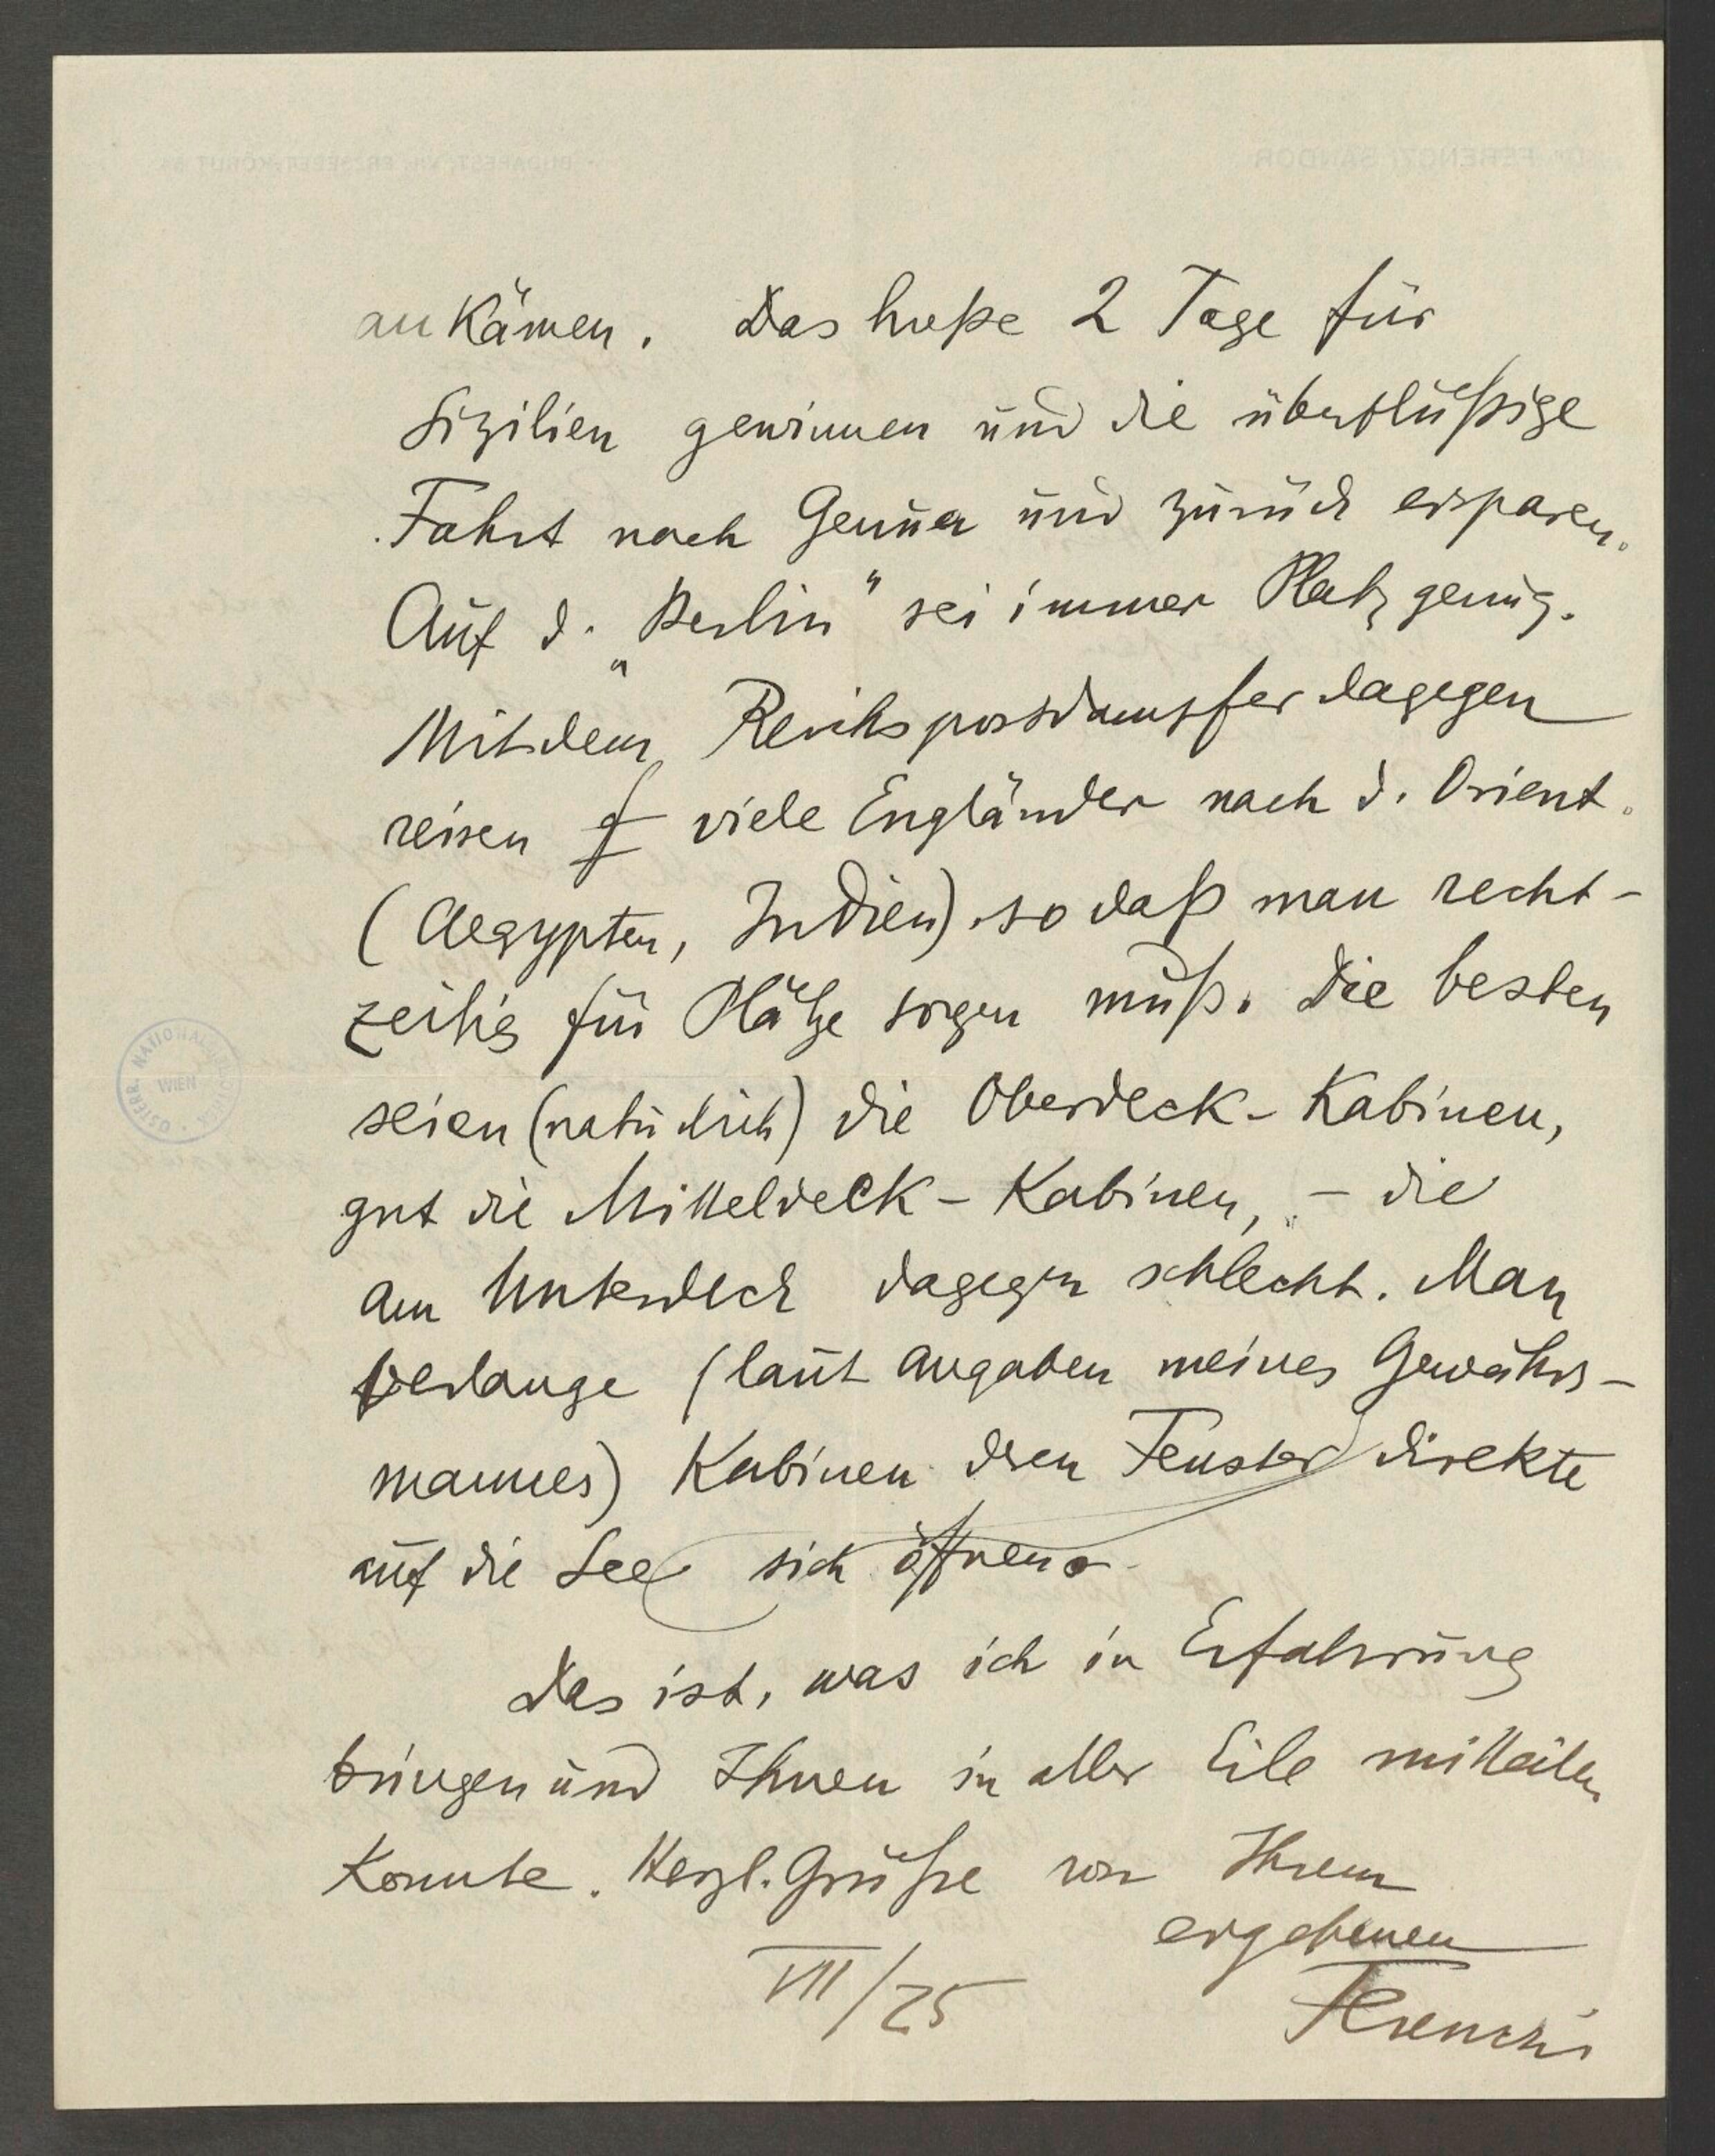 ankämen. Das hieße 2 Tage für
Sizilien gewinnen und die überflüßige
Fahrt nach Genua und zurück ersparen.
Auf d. „Berlin“ sei immer Platz genug.
Mit dem Reichspostdampfer dagegen
reisen viele Engländer nach d. Orient.
(Aegypten, Indien) so daß man recht-
zeitig für Plätze sorgen muß. Die besten
seien (natürlich) die Oberdeck-Kabinen,
gut die Mitteldeck-Kabinen, – die
am Unterdeck dagegen schlecht. Man
verlange (laut Angaben meines Gewährs-
mannes) Kabinen deren Fenster direkte
auf die See sich öffnen.
Das ist, was ich in Erfahrung
bringen und Ihnen in aller Eile mitteilen
konnte. Herzl. Grüße von Ihrem
ergebenen
VII/25 Ferenczi
ÖSTERR. NATIONALBIBLIOTHEK
WIEN